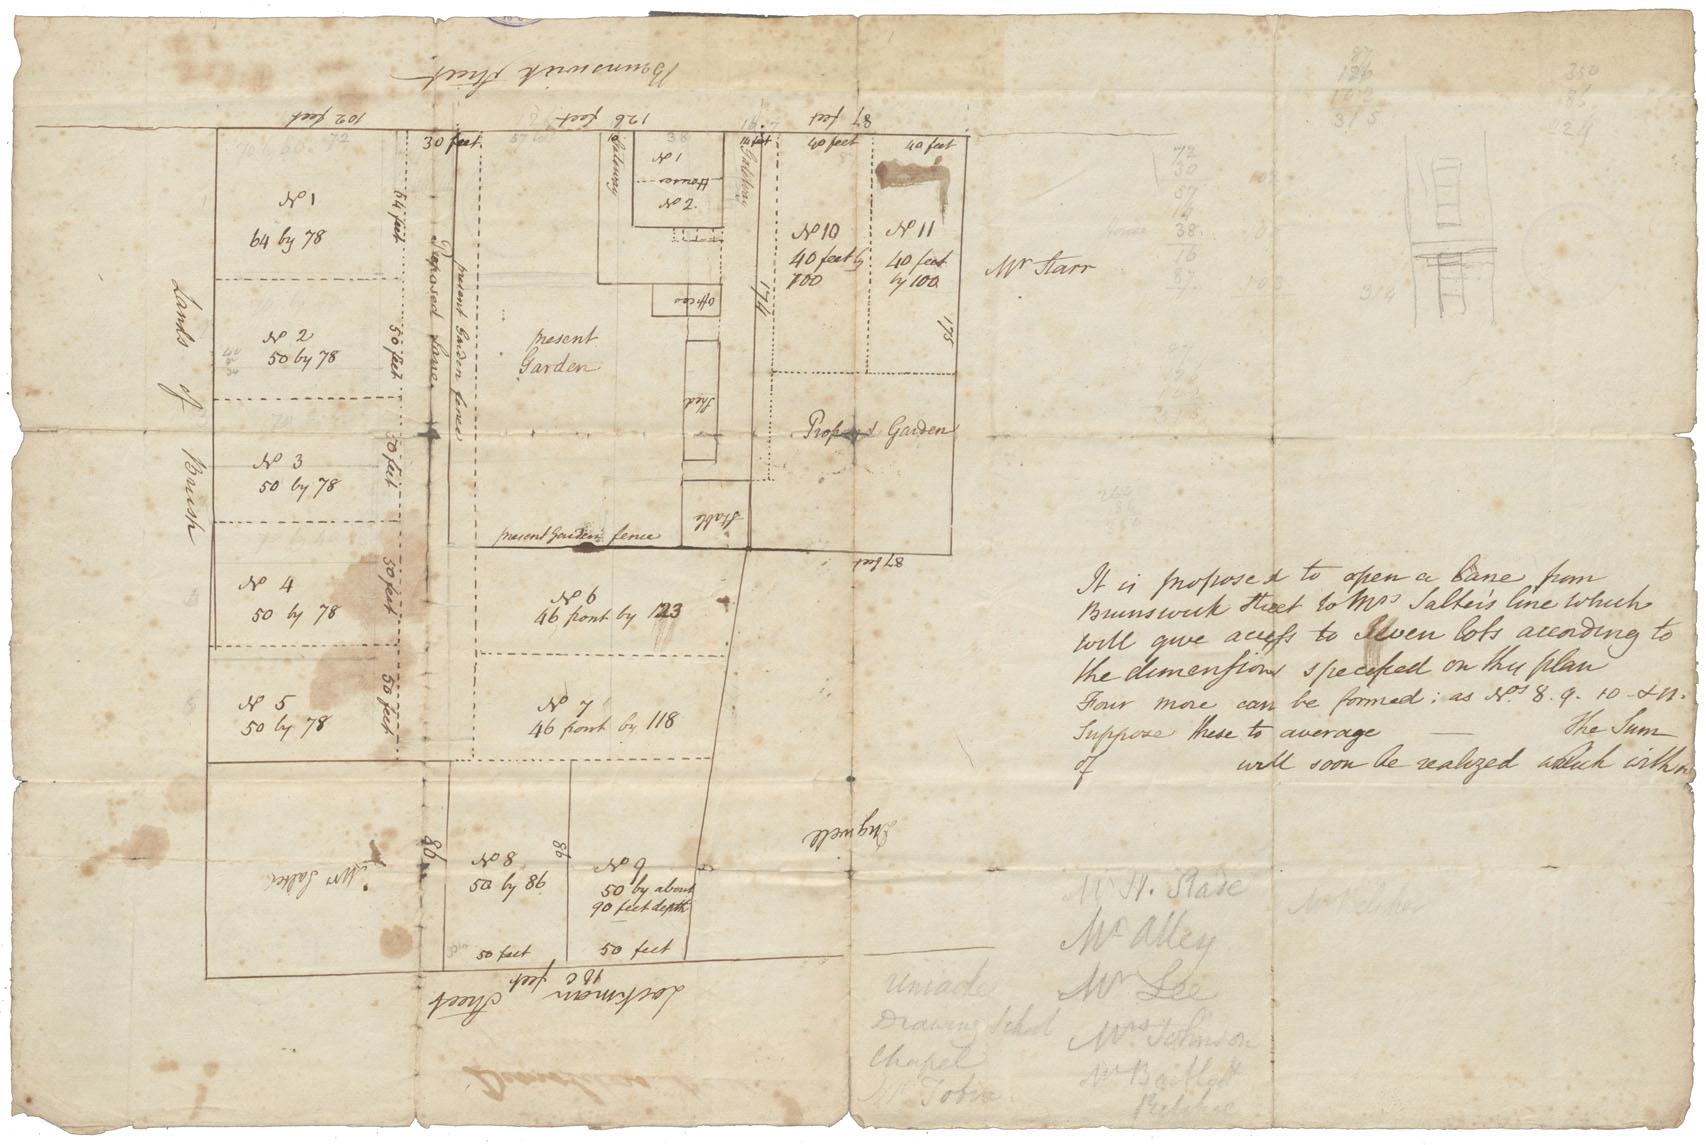 Brunswick Street
102 feet
126 feet
87 feet
30 feet
14 feet
40 feet
40 feet
No 1
64 by 78
64 feet
Proposed Lane
present Garden fence
Gateway
No 1
House
No 2
Gateway
174
No 10
40 feet by
100
No 11
40 feet
by 100
175
Mr Starr
Lands of Brush
No 2
50 by 78
50 feet
present
Garden
Offices
Shed
No 3
50 by 78
50 feet
Proposed Garden
Stable
present Garden fence
87 feet
No 4
50 by 78
50 feet
No 6
46 front by 123
No 5
50 by 78
50 feet
No 7
46 front by 118
Mrs Salter
98
No 8
50 by 86
50 feet
98
No 9
50 by about
90 feet depth
50 feet
Lockman Street
feet
It is proposed to open a Lane from
Brunswick Street to Mrs Salter's line which
will give access to seven lots according to
the dimensions specified on this plan
Four more can be formed: as Nos 8. 9. 10 & 11.
Suppose these to average — the Sum
of will soon be realized which with
72
30
67
14
38
16
87
314
Mr H. Slade
Mr Alley
Mr Lee
Mrs Johnson
Mr Bartlett
Uniacke
Drawing School
Chapel
Tobin